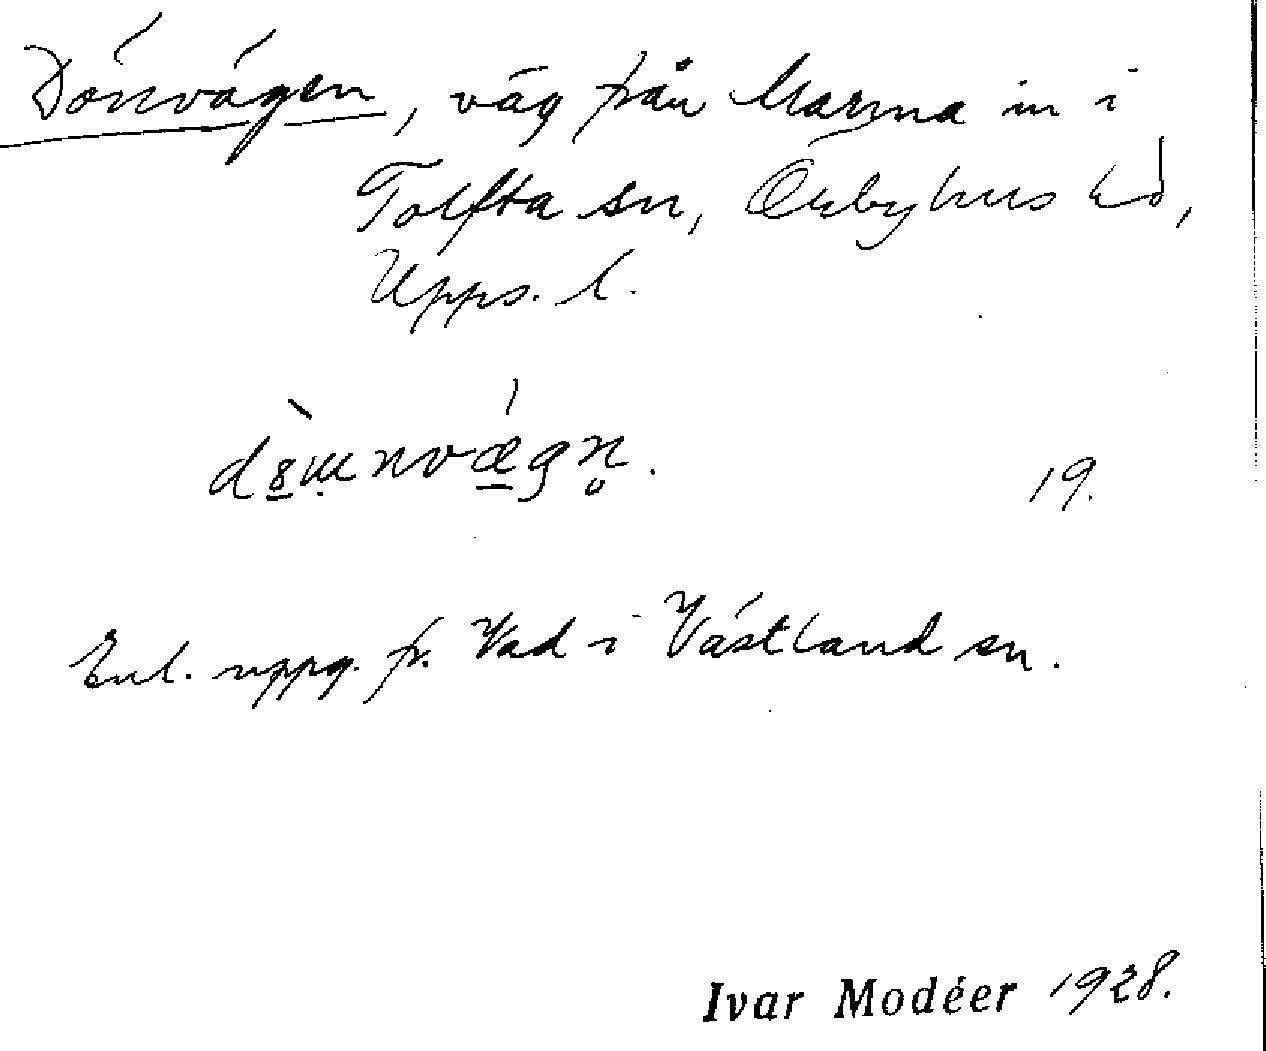 Dönvägen, väg från Marma in i
Tolfta sn, Örbyhus hd,
Upps. l.
19.
Enl. uppg. fr. Vad i Västland sn.
Ivar Modéer 1928.